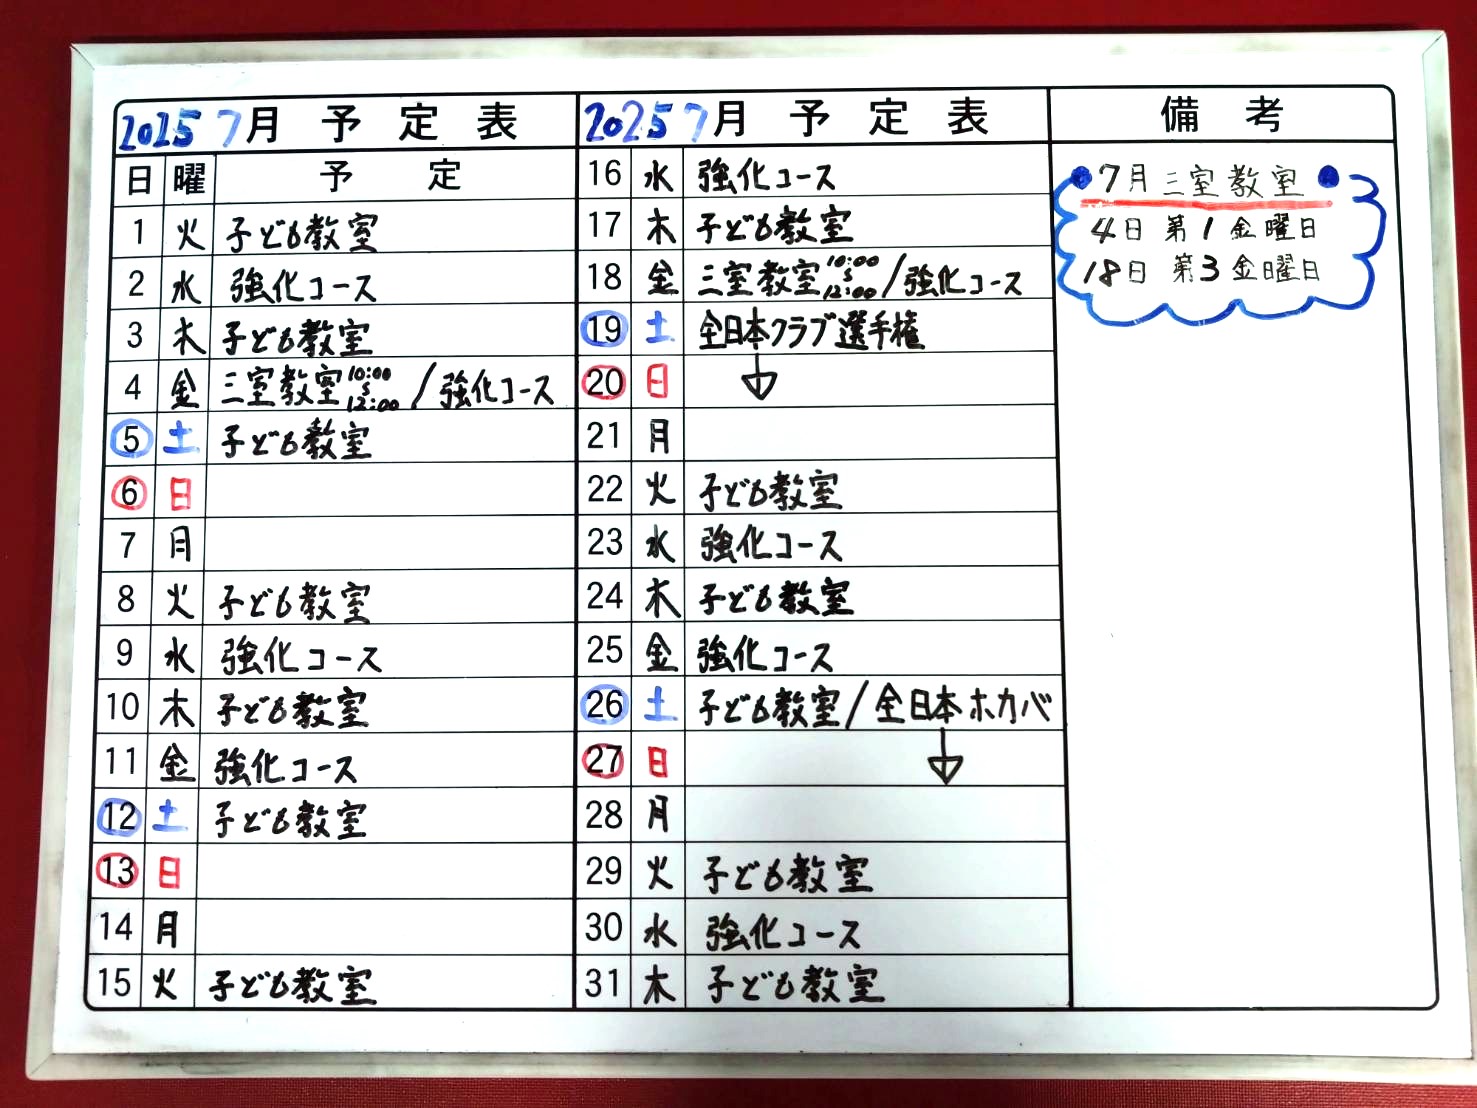 2025 7月 予定表
日 曜 予定
1 火 子ども教室
2 水 強化コース
3 木 子ども教室
4 金 三室教室 10:00 S 12:00 / 強化コース
5 土 子ども教室
6 日
7 月
8 火 子ども教室
9 水 強化コース
10 木 子ども教室
11 金 強化コース
12 土 子ども教室
13 日
14 月
15 火 子ども教室
2025 7月 予定表
16 水 強化コース
17 木 子ども教室
18 金 三室教室 10:00 S 12:00 / 強化コース
19 土 全日本クラブ選手権
20 日 ↓
21 月
22 火 子ども教室
23 水 強化コース
24 木 子ども教室
25 金 強化コース
26 土 子ども教室 / 全日本ホカバ
27 日 ↓
28 月
29 火 子ども教室
30 水 強化コース
31 木 子ども教室
備考
●7月三室教室●
4日 第1金曜日
18日 第3金曜日